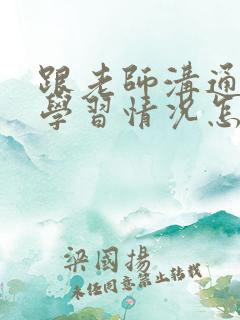 跟老師溝通
學習情況怎
梁國揚
未任同意禁止转载